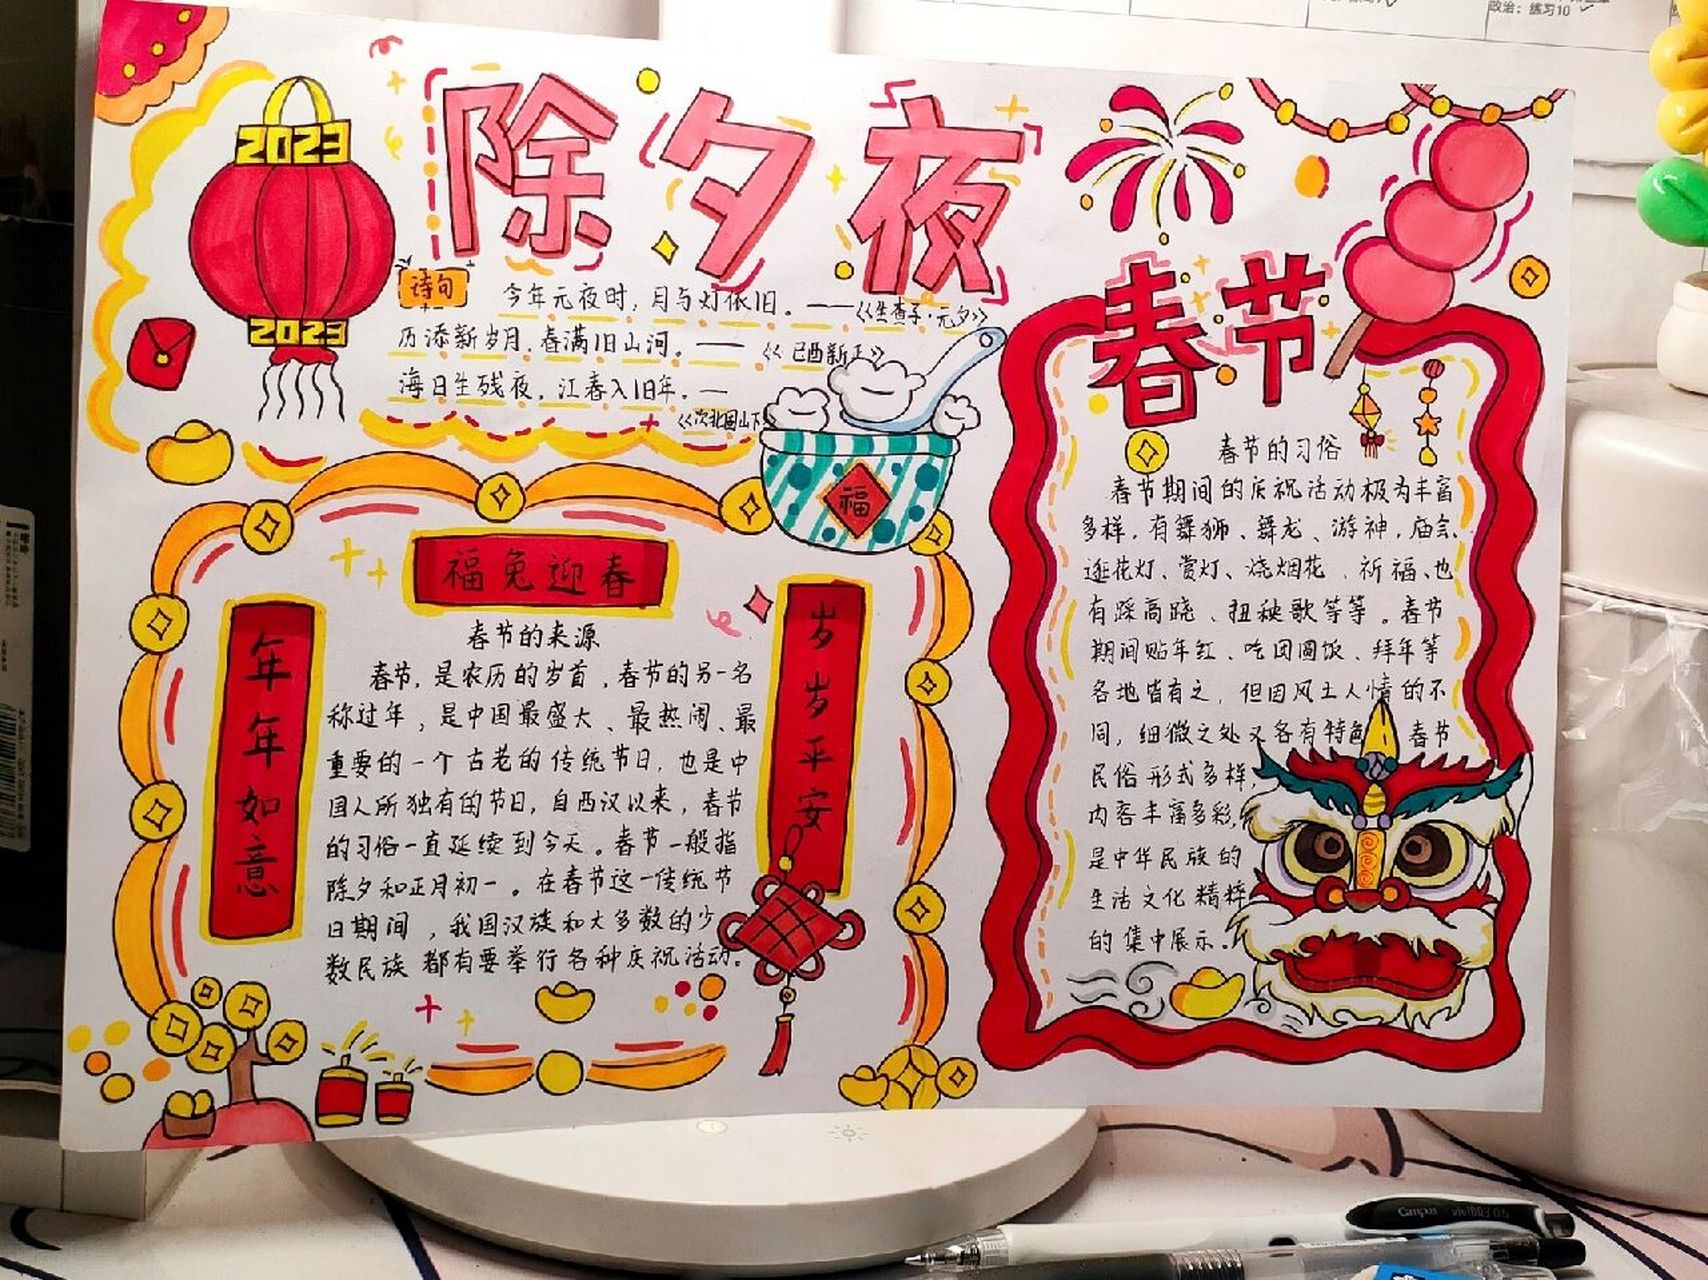 政治：练习10
除夕夜
2023
2023
诗句
今年元夜时，月与灯依旧。——《生查子·元夕》
历添新岁月，春满旧山河。——《己酉新正》
海日生残夜，江春入旧年。—
《次北固山下》
福
春节
福兔迎春
年年如意
岁岁平安
春节的来源
春节，是农历的岁首，春节的另一名
称过年，是中国最盛大、最热闹、最
重要的一个古老的传统节日，也是中
国人所独有的节日，自西汉以来，春节
的习俗一直延续到今天。春节一般指
除夕和正月初一。在春节这一传统节
日期间，我国汉族和大多数的少
数民族都有要举行各种庆祝活动。
春节的习俗
春节期间的庆祝活动极为丰富
多样，有舞狮、舞龙、游神，庙会、
逛花灯、赏灯、烧烟花、祈福、也
有踩高跷、扭秧歌等等。春节
期间贴年红、吃团圆饭、拜年等
各地皆有之，但因风土人情的不
同，细微之处又各有特色 春节
民俗形式多样，
内容丰富多彩，
是中华民族的
生活文化精粹
的集中展示。
Campus